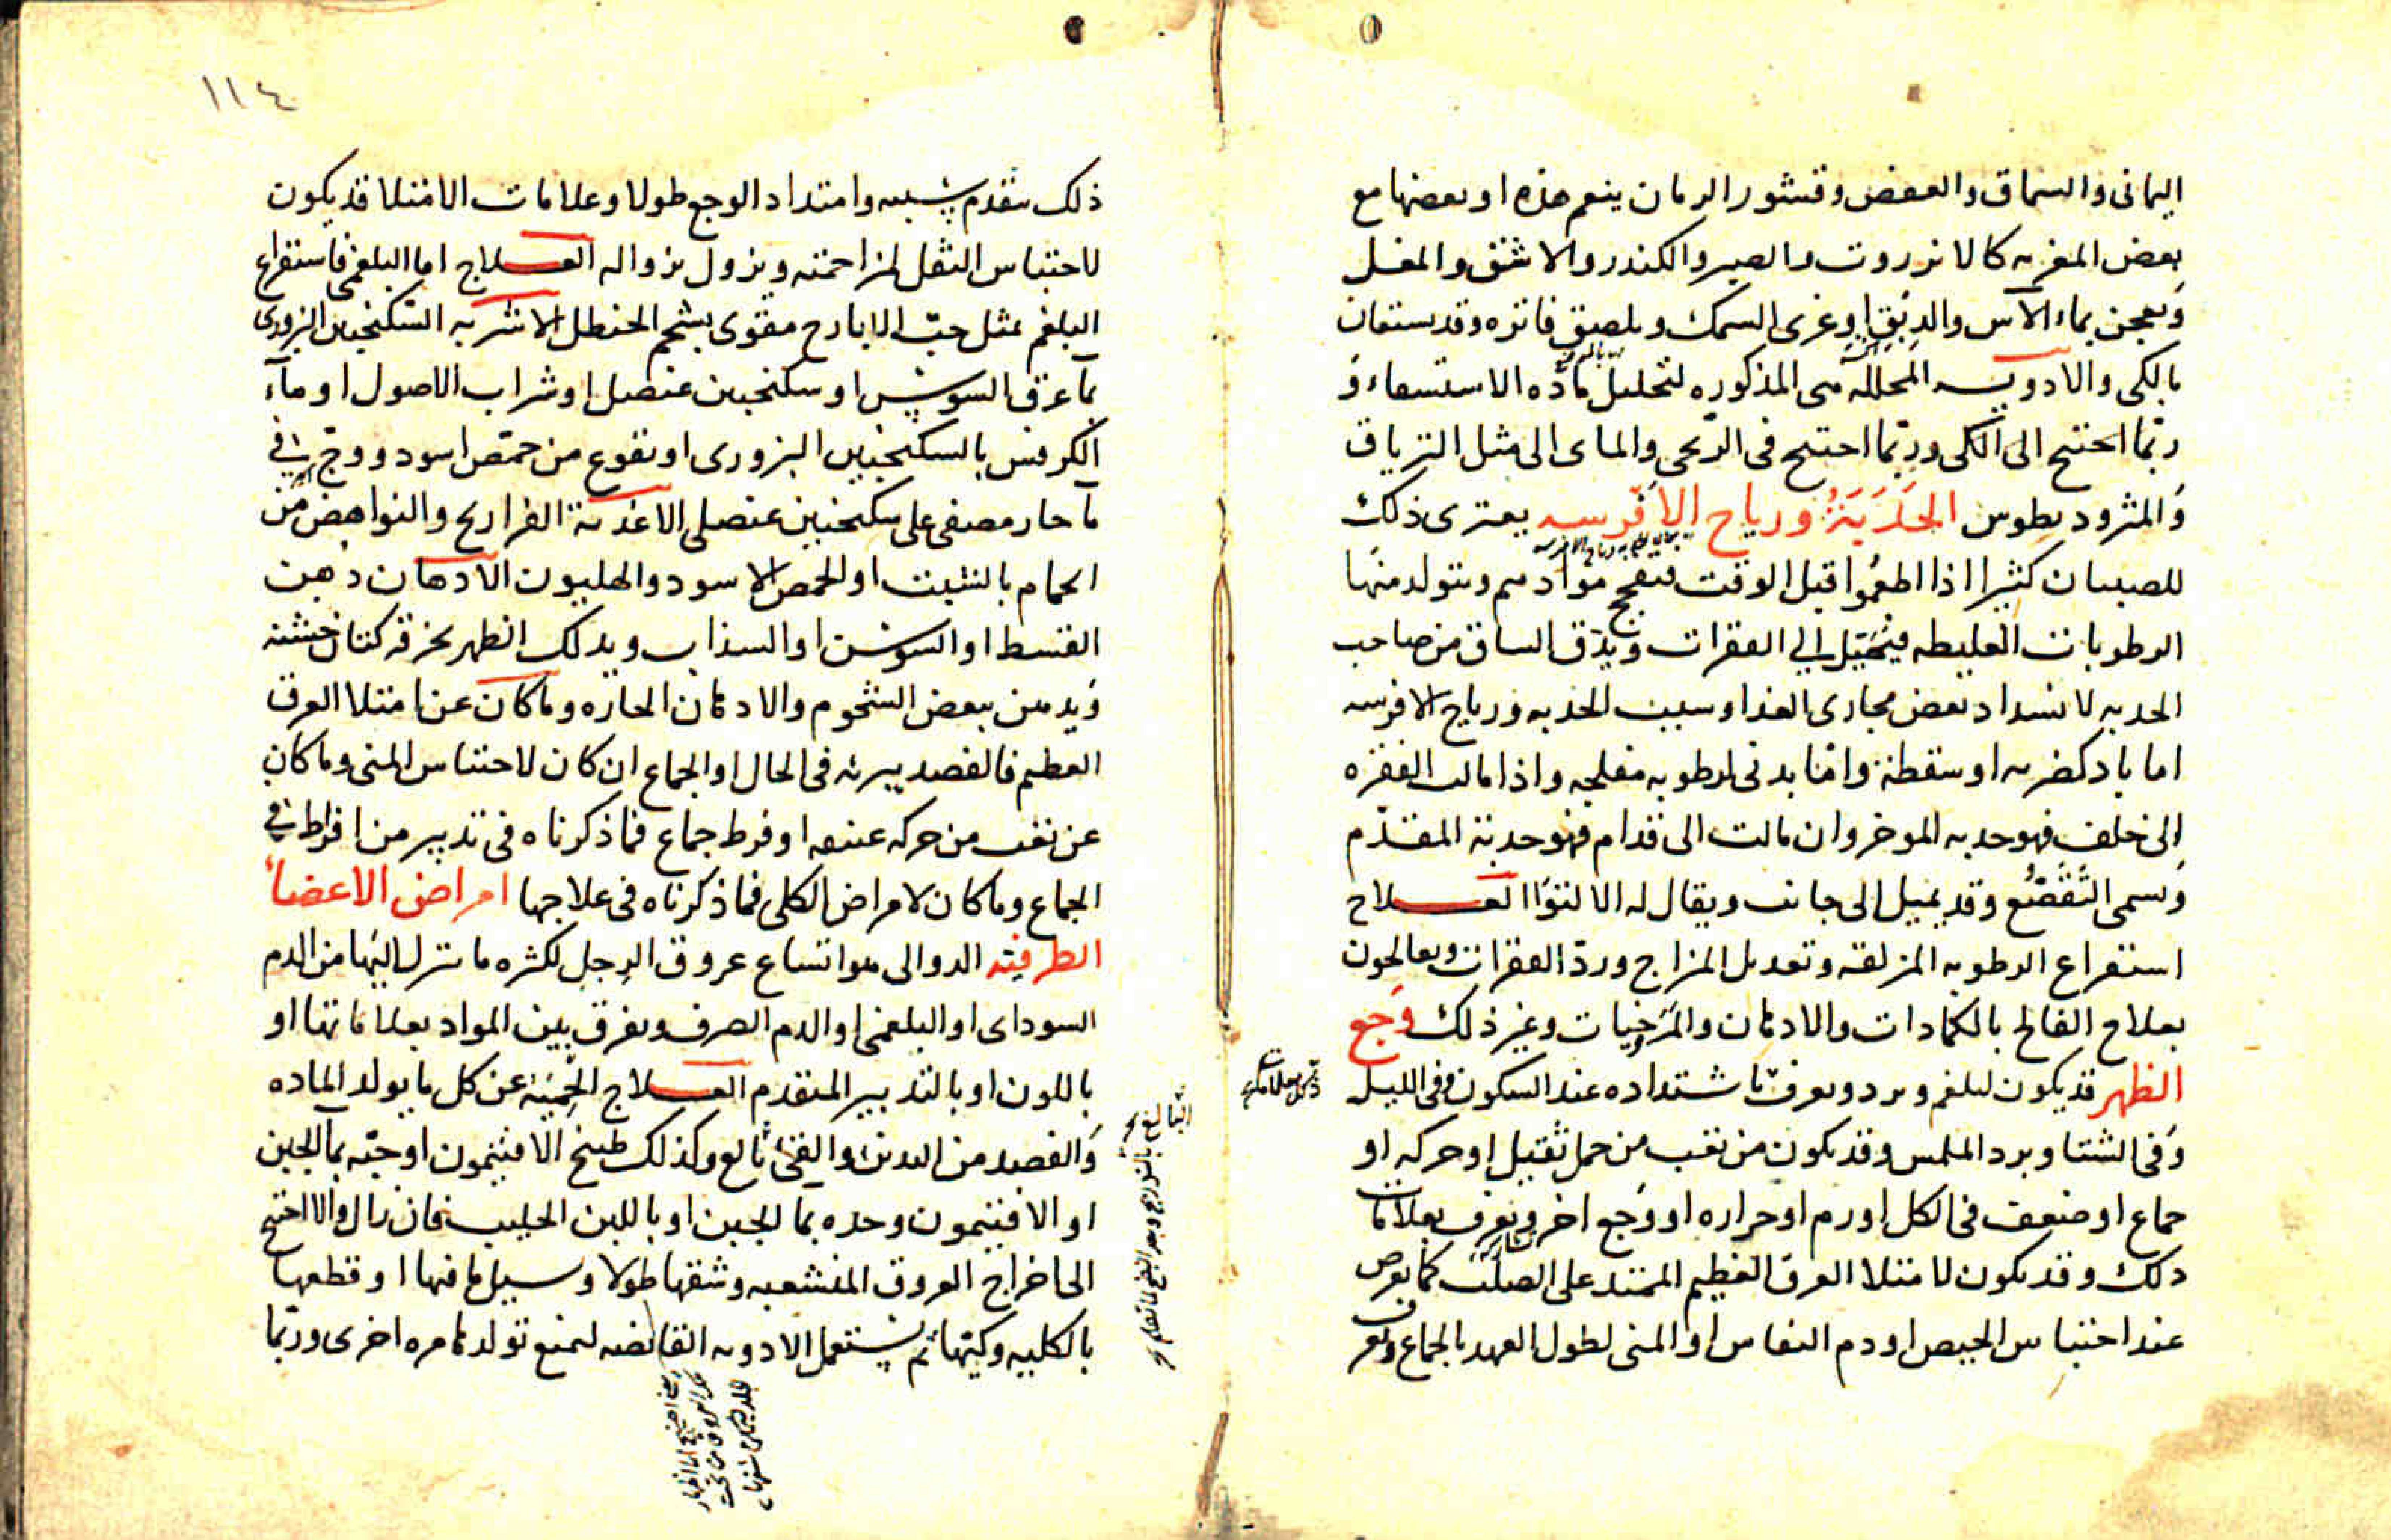 اليمانى والسماق والعفص وقشور الرمان ينعم هذه او بعضها مع
بعض المغريه كالانزروت والصبر والكندر والاشق والمقل
وتعجن بماء الآس والدبق او غرى السمك ويلصق فاتره وقد يستعان
بالكى والادويه المحلله هى المذكوره لتحليل مادة الاستسقاء و
ربما احتيج الى الكى وربما احتيج فى الريحى والماى الى مثل الترياق
والمثروديطوس الحدبة ورياح الافرسه يعترى ذلك
للصبيان كثيرا اذا اطعموا قبل الوقت فتفجج موادهم ويتولد منها
الرطوبات الغليظه فيتخيل الى الفقرات ويدق الساق من صاحب
الحدبه لانسداد بعض مجارى الغذا وسبب الحدبه ورياح الافرسه
اما باد كضربه او سقطة واما بدنى لرطوبه مفلجه واذا مالت الفقره
الى خلف فهو حدبه الموخر وان مالت الى قدام فهو حدبة المقدم
وتسمى التقصع وقد يميل الى جانب ويقال له الالتوا العلاج
استفراغ الرطوبه المزلقه وتعديل المزاج ورد الفقرات ويعالجون
بعلاج الفالج بالكمادات والادهان والمرخيات وغير ذلك وجع
الظهر قد يكون لبلغم وبرد ويعرف باشتداده عند السكون وفى الليل
وفى الشتا وبرد الملمس وقد يكون من تعب من حمل ثقيل او حركه او
جماع او ضعف فى الكلى او ورم او حراره او وجع اخر ويعرف بعلامات
ذلك وقد يكون لامتلا العرق العظيم الممتد على الصلب كما يعرض
عند احتباس الحيض او دم النفاس او المنى لطول العهد بالجماع ويعرف
١١٤
ذلك بتقدم سببه وامتداد الوجع طولا وعلامات الامتلا قد يكون
لاحتباس الثفل لمزاحمته ويزول بزواله العلاج اما البلغمى فاستفراغ
البلغم بمثل حب الايارج مقوى بشحم الحنظل الاشربه السكنجبين البزورى
بماء عرق السوس او سكنجبين عنصلى او شراب الاصول او ماء
الكرفس بالسكنجبين البزورى او نقوع من حمص اسود ووج فى
ماء حار مصفى على سكنجبين عنصلى الاغذية الفراريج والنواهض من
الحمام بالشبت او الحمص الاسود والهليون الادهان دهن
القسط او السوسن او السذاب ويدلك الظهر بخرقة كتان خشنه
ويدهن ببعض الشحوم والادهان الحاره وما كان عن امتلا العرق
العظيم فالفصد يبرئه فى الحال او الجماع ان كان لاحتباس المنى وما كان
عن تعب من حركه عنيفه او فرط جماع فما ذكرناه فى تدبير من افرط فى
الجماع وما كان لامراض الكلى فما ذكرناه فى علاجها امراض الاعضاء
الطرفية الدوالى هو اتساع عروق الرجل لكثره ما ينزل اليها من الدم
السوداى او البلغمى او الدم الصرف ويفرق بين المواد بعلاماتها او
باللون او بالتدبير المتقدم العلاج الحمية عن كل ما يولد الماده
والفصد من اليدين والقى بالغ وكذلك طبيخ الافتيمون او حبه بماء الجبن
او الافتيمون وحده بما الجبن او باللبن الحليب فان زال والا احتيج
الى اخراج العروق المنشعبه وشقها طولا وسيل ما فيها او قطعها
بالكليه وكيها ثم يستعمل الادويه القابضه لتمنع تولدها مره اخرى وربما